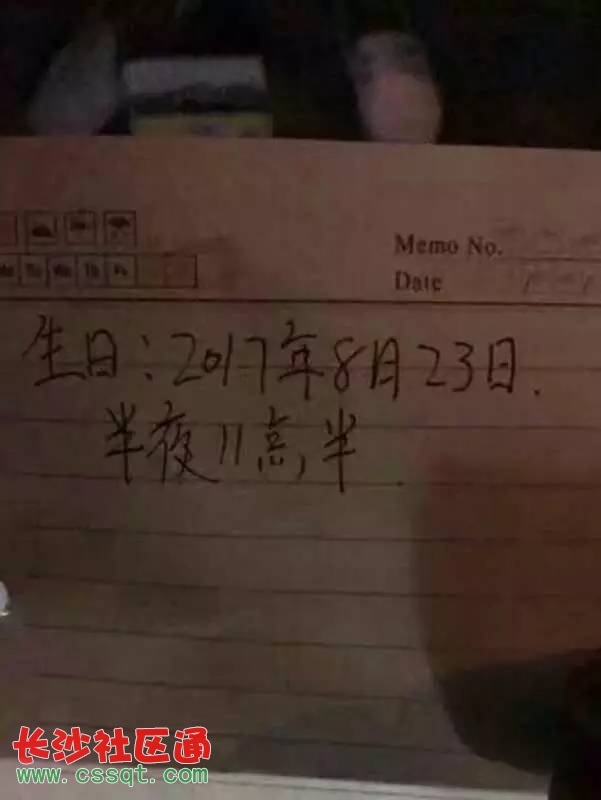 Memo No.
Mo Tu We Th Fr
Date
生日：2017年8月23日.
半夜11点半.
长沙社区通
www.cssqt.com